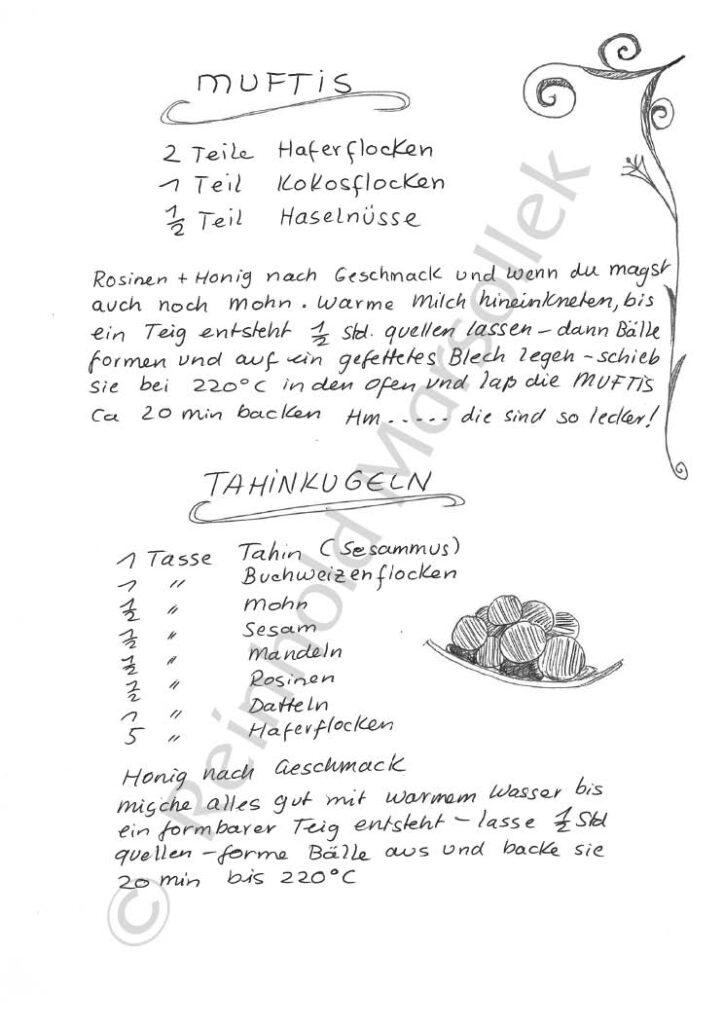 MUFTiS
2 Teile Haferflocken
1 Teil Kokosflocken
1/2 Teil Haselnüsse
Rosinen + Honig nach Geschmack und wenn du magst
auch noch Mohn. Warme Milch hineinkneten, bis
ein Teig entsteht 1/2 Std. quellen lassen – dann Bälle
formen und auf ein gefettetes Blech legen – schieb
sie bei 220°C in den Ofen und laß die MUFTiS
Ca 20 min backen Hm..... die sind so lecker!
TAHiNKUGELN
1 Tasse Tahin (Sesammus)
1 " Buchweizenflocken
1/2 " Mohn
1/2 " Sesam
1/2 " Mandeln
1/2 " Rosinen
1 " Datteln
5 " Haferflocken
Honig nach Geschmack
mische alles gut mit warmem Wasser bis
ein formbarer Teig entsteht – lasse 1/2 Std
quellen – forme Bälle aus und backe sie
20 min bis 220°C
© Reinhold Marsollek